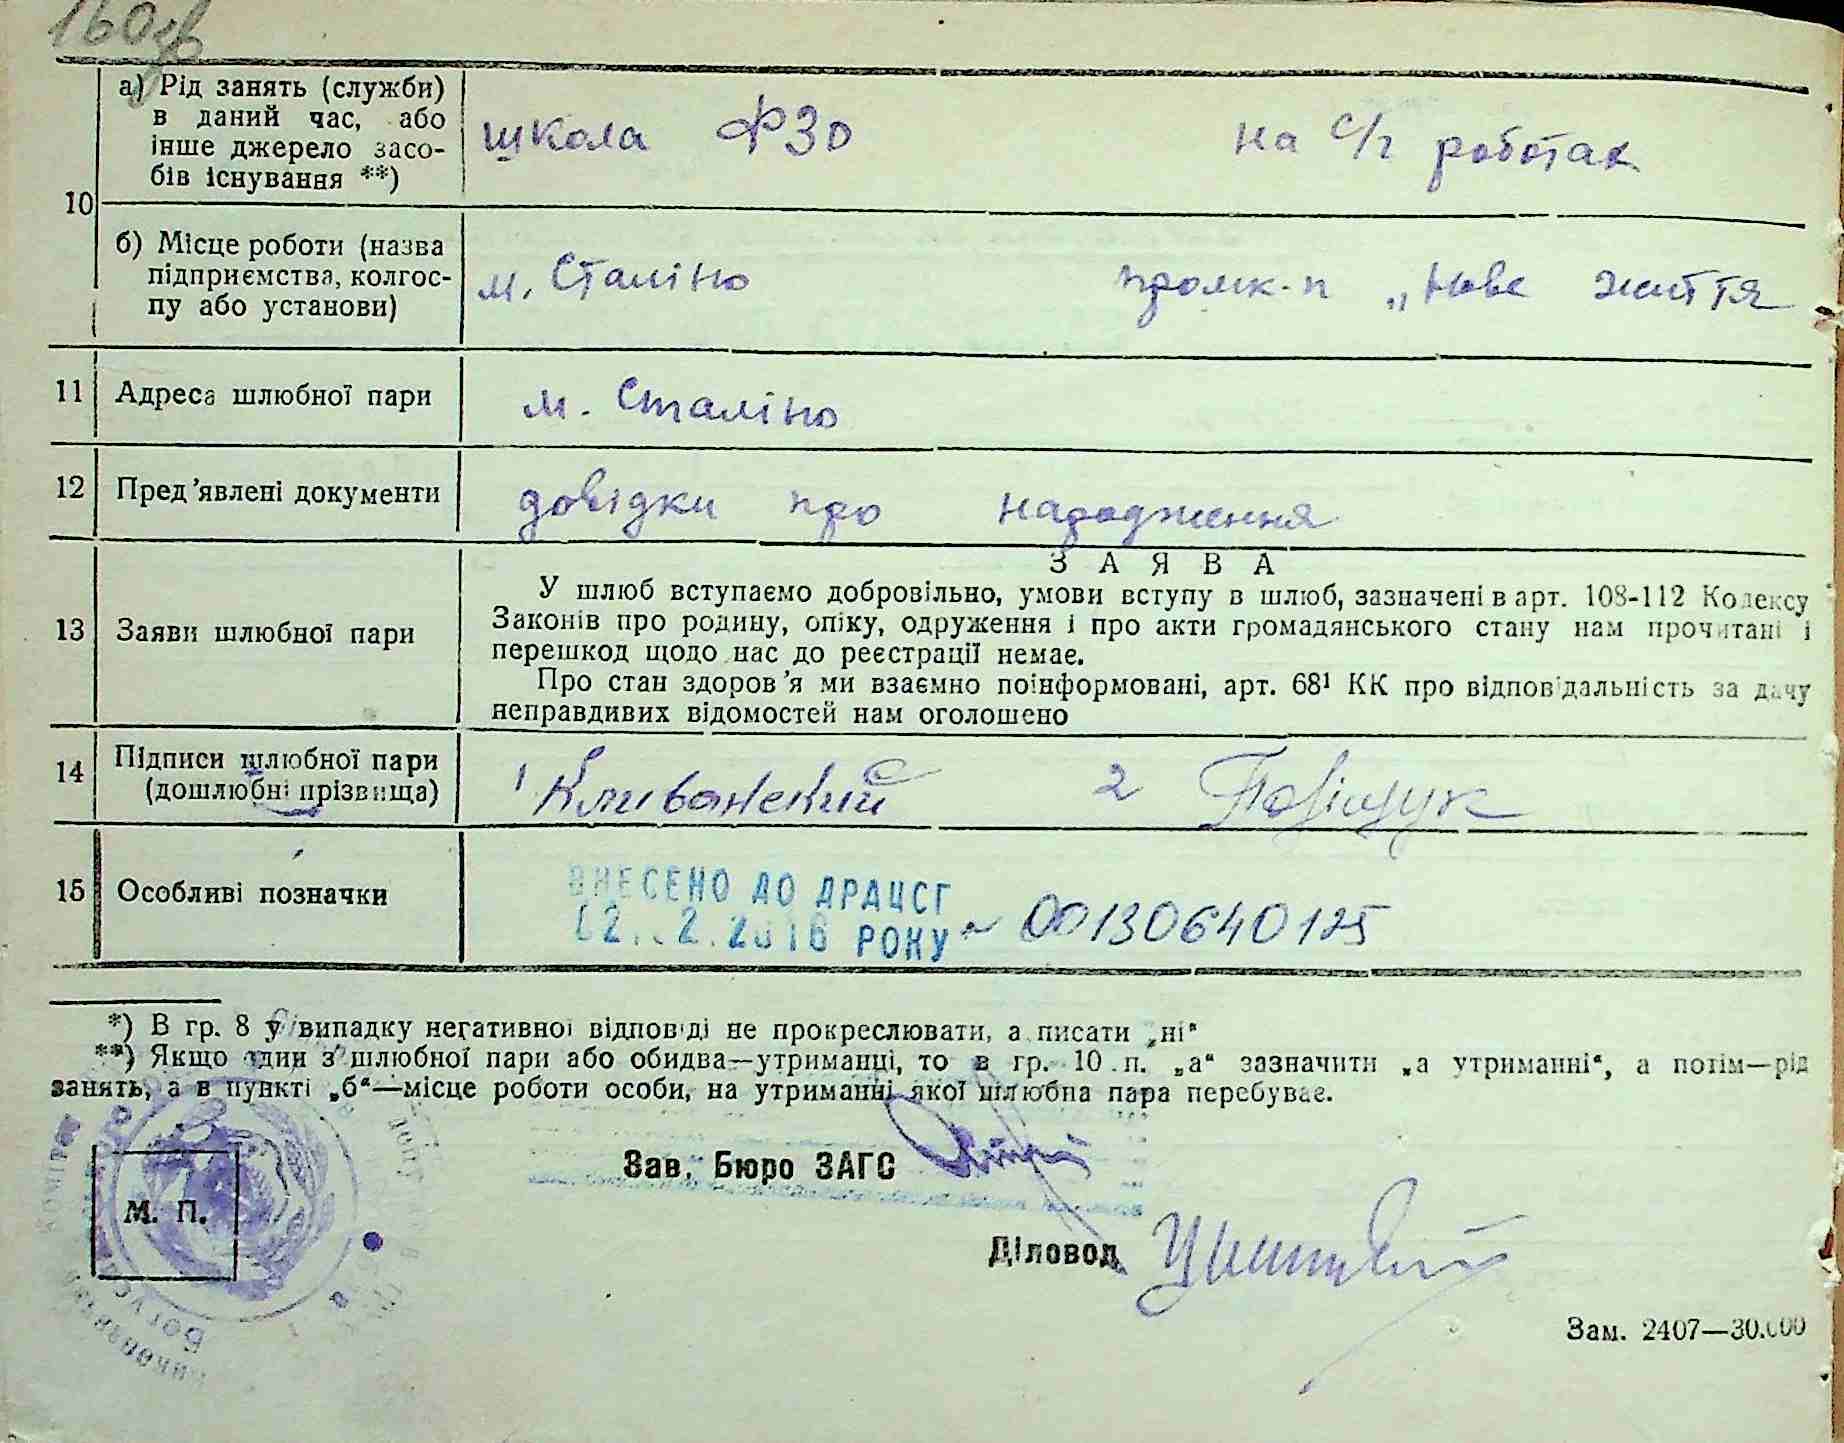 160зв
а) Рід занять (служби)
в даний час, або
інше джерело засо-
бів існування **)
школа ФЗО на с/г роботах
10
б) Місце роботи (назва
підприємства, колгос-
пу або установи)
м. Сталіно промк-п „Нове життя
11 Адреса шлюбної пари м. Сталіно
12 Пред'явлені документи довідки про народження
ЗАЯВА
13 Заяви шлюбної пари
У шлюб вступаємо добровільно, умови вступу в шлюб, зазначені в арт. 108-112 Кодексу
Законів про родину, опіку, одруження і про акти громадянського стану нам прочитані і
перешкод щодо нас до реєстрації немає.
Про стан здоров'я ми взаємно поінформовані, арт. 68¹ КК про відповідальність за дачу
неправдивих відомостей нам оголошено
14 Підписи шлюбної пари
(дошлюбні прізвища)
1 Кливанский 2 Поліщук
15 Особливі позначки
ВНЕСЕНО ДО ДРАЦСГ
РОКУ № 00130640125
*) В гр. 8 у випадку негативної відповіді не прокреслювати, а писати „ні“
**) Якщо один з шлюбної пари або обидва—утриманці, то в гр. 10 п. „а“ зазначити „а утриманні“, а потім—рід
занять, а в пункті „б“—місце роботи особи, на утриманні якої шлюбна пара перебуває.
Зав. Бюро ЗАГС
М. П.
Діловод
Зам. 2407—30.000